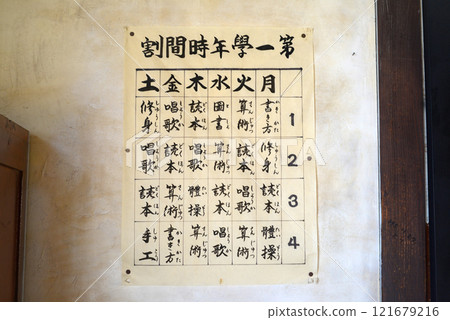 第一學年時間割
月 火 水 木 金 土
1 書き方 算術 圖書 読本 唱歌 修身
2 修身 読本 算術 算術 読本 唱歌
3 読本 唱歌 読本 體操 算術 読本
4 體操 算術 唱歌 算術 書き方 手工
121679216